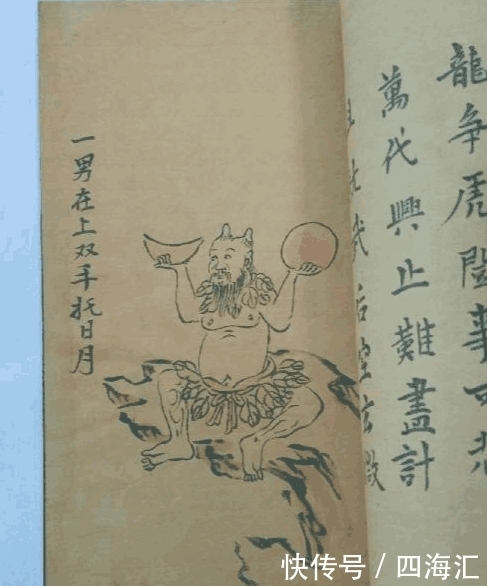 龍争虎鬪事可悲
萬代興止難盡計
武后
一男在上双手托日月
快传号 / 四海汇